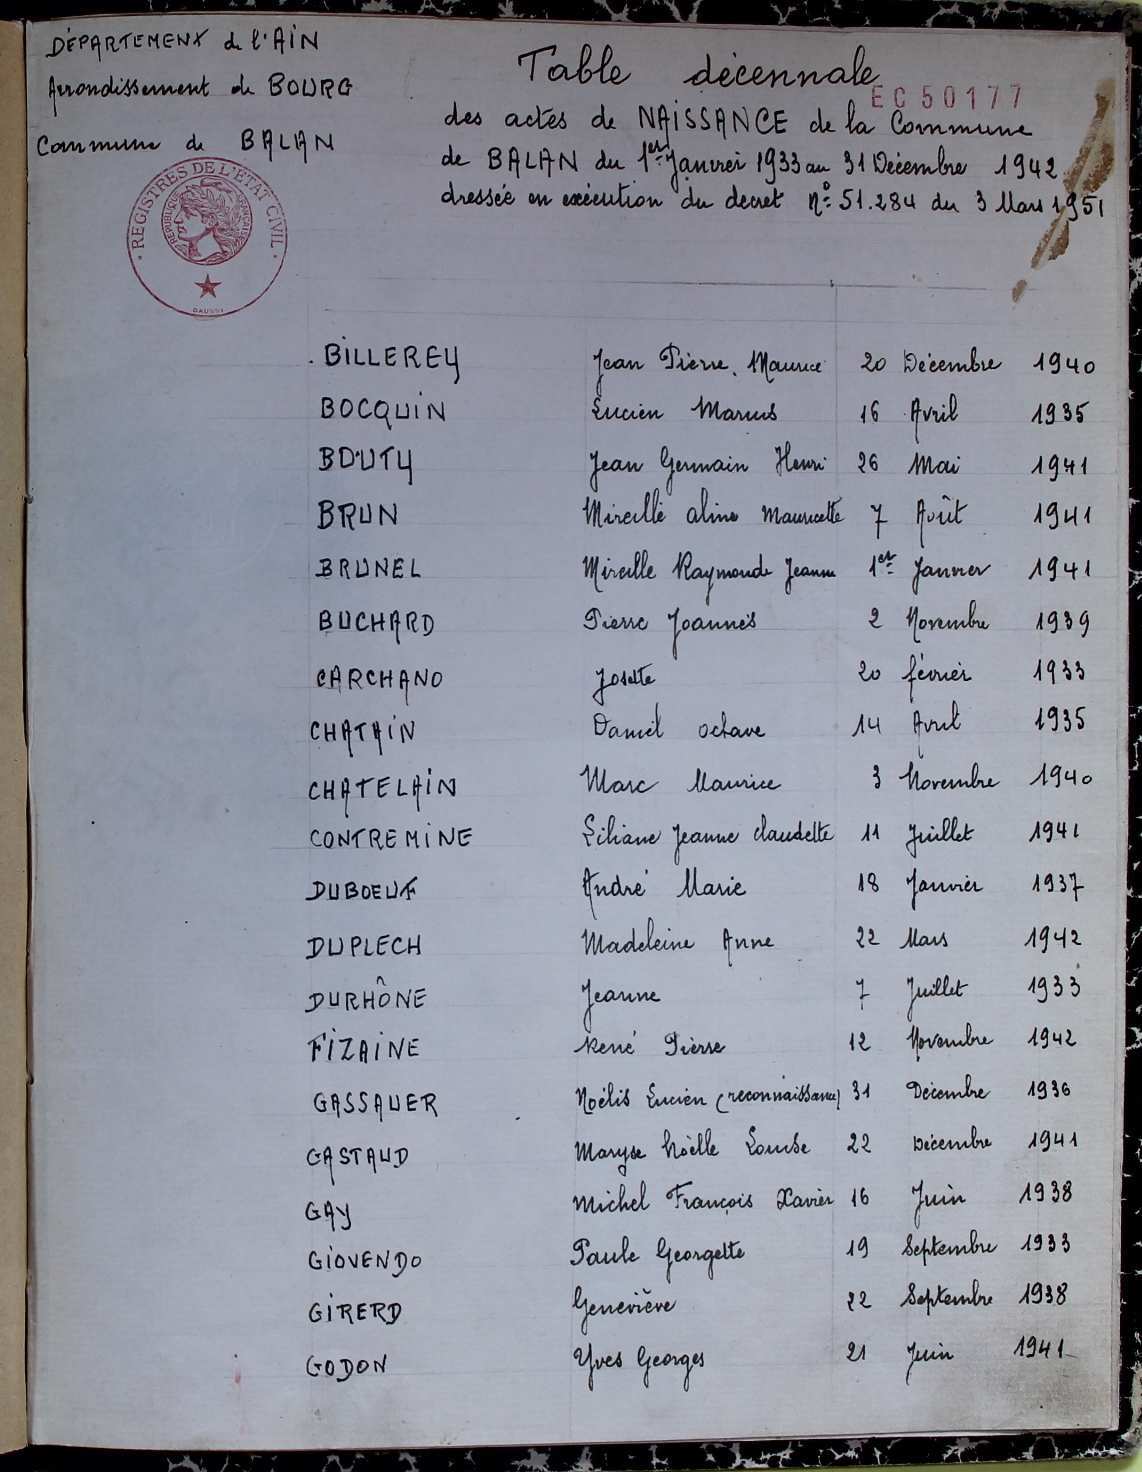 DÉPARTEMENT de l'AIN
Arrondissement de BOURG
Commune de BALAN
REGISTRES DE L'ETAT CIVIL
REPUBLIQUE FRANÇAISE
Table décennale
EC50177
des actes de NAISSANCE de la Commune
de BALAN du 1er Janvier 1933 au 31 Décembre 1942
dressée en exécution du decret n° 51.284 du 3 Mars 1951
BILLEREY Jean Pierre Maurice 20 Décembre 1940
BOCQUIN Lucien Marius 16 Avril 1935
BOUTY Jean Germain Henri 26 Mai 1941
BRUN Mireille aline mauricette 7 Août 1941
BRUNEL Mireille Raymonde Jeanne 1er Janvier 1941
BUCHARD Pierre Joannès 2 Novembre 1939
CARCHANO Josette 20 février 1933
CHATAIN Daniel octave 14 Avril 1935
CHATELAIN Marc Maurice 3 Novembre 1940
CONTREMINE Liliane Jeanne claudette 11 Juillet 1941
DUBOEUF André Marie 18 Janvier 1937
DUPLECH Madeleine Anne 22 Mars 1942
DURHÔNE Jeanne 7 Juillet 1933
FIZAINE René Pierre 12 Novembre 1942
GASSAUER Noélis Lucien (reconnaissance) 31 Décembre 1936
GASTAUD Maryse Noëlle Louise 22 Décembre 1941
GAY Michel François Xavier 16 Juin 1938
GIOVENDO Paule Georgette 19 Septembre 1933
GIRERD Geneviève 22 Septembre 1938
GODON Yves Georges 21 Juin 1941